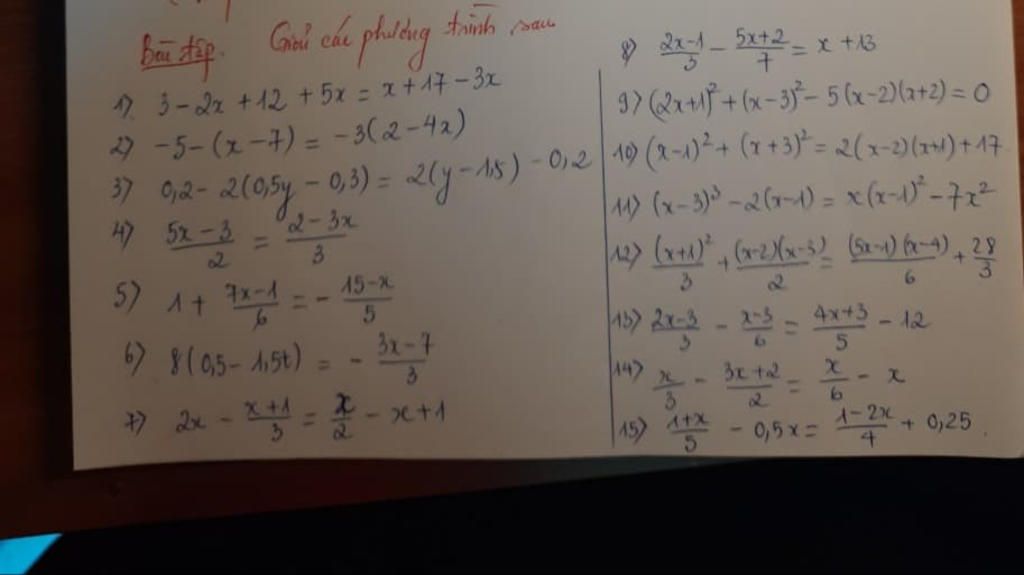 Bài tập. Giải các phương trình sau
1) 3 - 2x + 12 + 5x = x + 17 - 3x
2) -5 - (x - 7) = -3(2 - 4x)
3) 0,2 - 2(0,5y - 0,3) = 2(y - 1,5) - 0,2
4) \frac{5x - 3}{2} = \frac{2 - 3x}{3}
5) 1 + \frac{7x - 1}{6} = - \frac{15 - x}{5}
6) 8(0,5 - 1,5t) = - \frac{3x - 7}{3}
7) 2x - \frac{x + 1}{3} = \frac{x}{2} - x + 1
8) \frac{2x - 1}{3} - \frac{5x + 2}{7} = x + 13
9) (2x + 1)² + (x - 3)² - 5(x - 2)(x + 2) = 0
10) (x - 1)² + (x + 3)² = 2(x - 2)(x + 1) + 17
11) (x - 3)³ - 2(x - 1) = x(x - 1)² - 7x²
12) \frac{(x + 1)²}{3} + \frac{(x - 2)(x - 3)}{2} = \frac{(5x - 1)(x - 4)}{6} + \frac{28}{3}
13) \frac{2x - 3}{3} - \frac{x - 3}{6} = \frac{4x + 3}{5} - 12
14) \frac{x}{3} - \frac{3x + 2}{2} = \frac{x}{6} - x
15) \frac{1 + x}{5} - 0,5x = \frac{1 - 2x}{4} + 0,25.